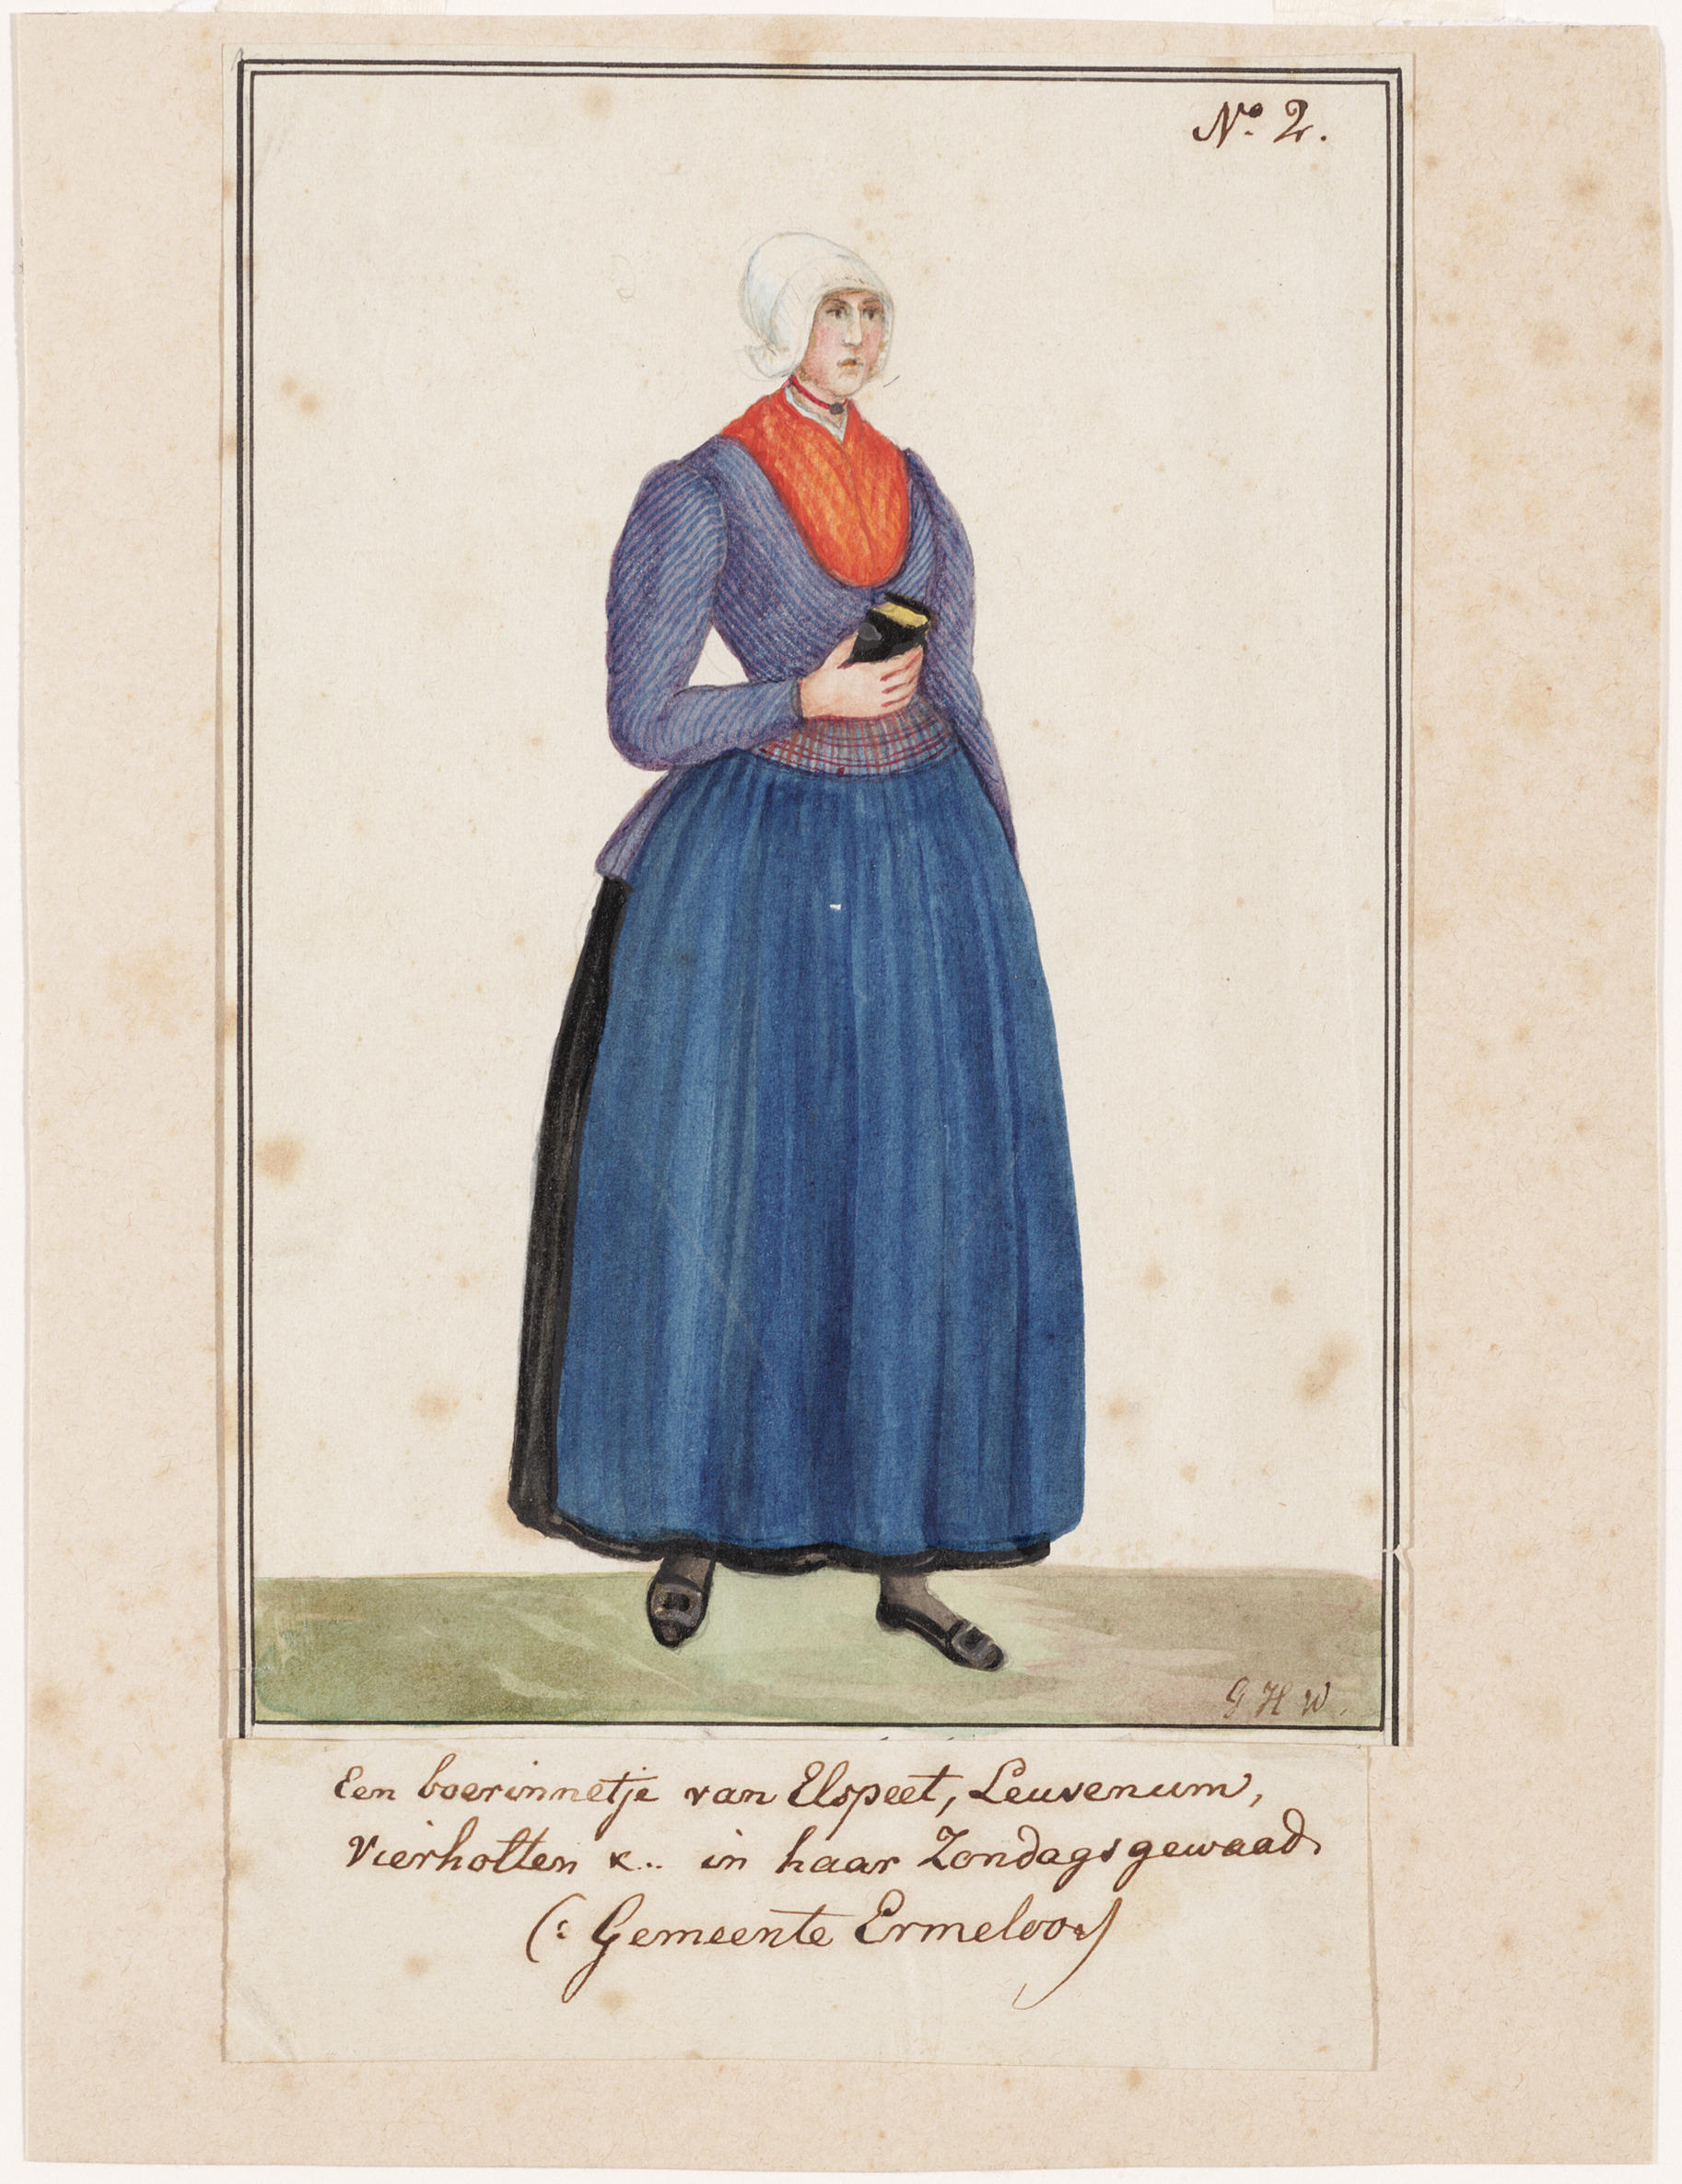 No. 2.
G H W.
Een boerinnetje van Elspeet, Leuvenum,
Vierholten &.. in haar Zondagsgewaad
(: Gemeente Ermeloo :)